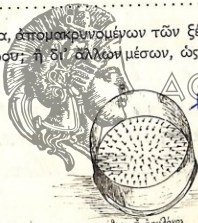 α, ἀπομακρυνομένων τῶν ξέ
ρου; ἢ δι' ἄλλων μέσων, ὡς